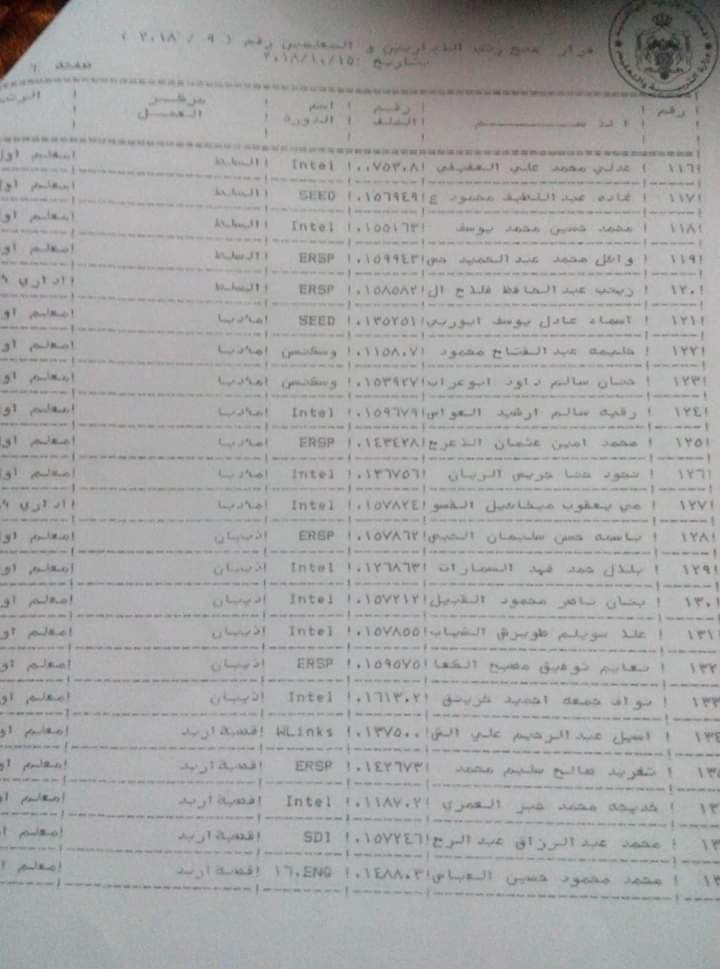 قرار منح رتب للإداريين و المعلمين رقم ( ٩ / ٢٠١٨ )
بتاريخ ٢٠١٨/١٠/١٥: صفحة ٦
رقم | الاســــم | رقم الملف | اسم الدورة | مركز العمل
١١٦ | عدلي محمد علي العفيفي | ٠٠٧٥٣٠٨ | Intel | السلط | معلم اول
١١٧ | غاده عبد اللطيف محمود ع | ٠١٥٦٩٤٩ | SEED | السلط | معلم او
١١٨ | محمد حسين محمد يوسف | ٠١٥٥١٦٣ | Intel | السلط | معلم او
١١٩ | وائل محمد عبد الحميد حس | ٠١٥٩٩٤٣ | ERSP | السلط | معلم او
١٢٠ | زينب عبد الحافظ فلاح ال | ٠١٥٨٥٨٢ | ERSP | السلط | اداري
١٢١ | اسماء عادل يوسف ابوربي | ٠١٣٥٢٥١ | SEED | مادبا | معلم او
١٢٢ | حليمه عبد الفتاح محمود | ٠١١٥٨٠٧ | وسكنس | مادبا | معلم او
١٢٣ | حنان سالم داود ابوعراب | ٠١٥٣٩٢٧ | وسكنس | مادبا | معلم او
١٢٤ | رقيه سالم ارشيد العواس | ٠١٥٩٦٧٩ | Intel | مادبا | معلم او
١٢٥ | محمد امين عثمان الاعرج | ٠١٤٣٤٢٨ | ERSP | مادبا | معلم او
١٢٦ | نجود حنا جريس الريان | ٠١٣٦٧٥٦ | Intel | مادبا | معلم او
١٢٧ | مي يعقوب ميخائيل القسو | ٠١٥٧٨٢٤ | Intel | مادبا | اداري
١٢٨ | باسمه حسن سليمان | ٠١٥٧٨٦٢ | ERSP | ذيبان | معلم او
١٢٩ | بلال حمد فهد | ٠١٢٦٨٦٣ | Intel | ذيبان | معلم او
١٣٠ | بنان ناصر محمود القبيل | ٠١٥٧٢١٢ | Intel | ذيبان | معلم او
١٣١ | علا سويلم طويرش الشياب | ٠١٥٧٨٥٥ | Intel | ذيبان | معلم او
١٣٢ | توفيق مصبح | ٠١٥٩٥٧٥ | ERSP | ذيبان | معلم او
١٣٣ | نواف جمعه احديد | ٠١٦١٣٠٢ | Intel | ذيبان | معلم او
١٣٤ | اسيل عبد الرحيم علي | ٠١٣٧٥٠٠ | WLinks | قصبة اربد | معلم او
١٣٥ | تغريد صالح سليم محمد | ٠١٤٢٦٧٣ | ERSP | قصبة اربد | معلم او
١٣ | خديجه محمد جبر العمري | ٠١١٨٧٠٢ | Intel | قصبة اربد | معلم ا
١٣ | محمد عبد الرزاق عبد الرح | ٠١٥٧٢٤٦ | SDI | قصبة اربد | معلم ا
١٣ | محمد محمود حسين العباس | ٠١٤٨٨٠٣ | ١٦.ENG | قصبة اربد | معلم ا